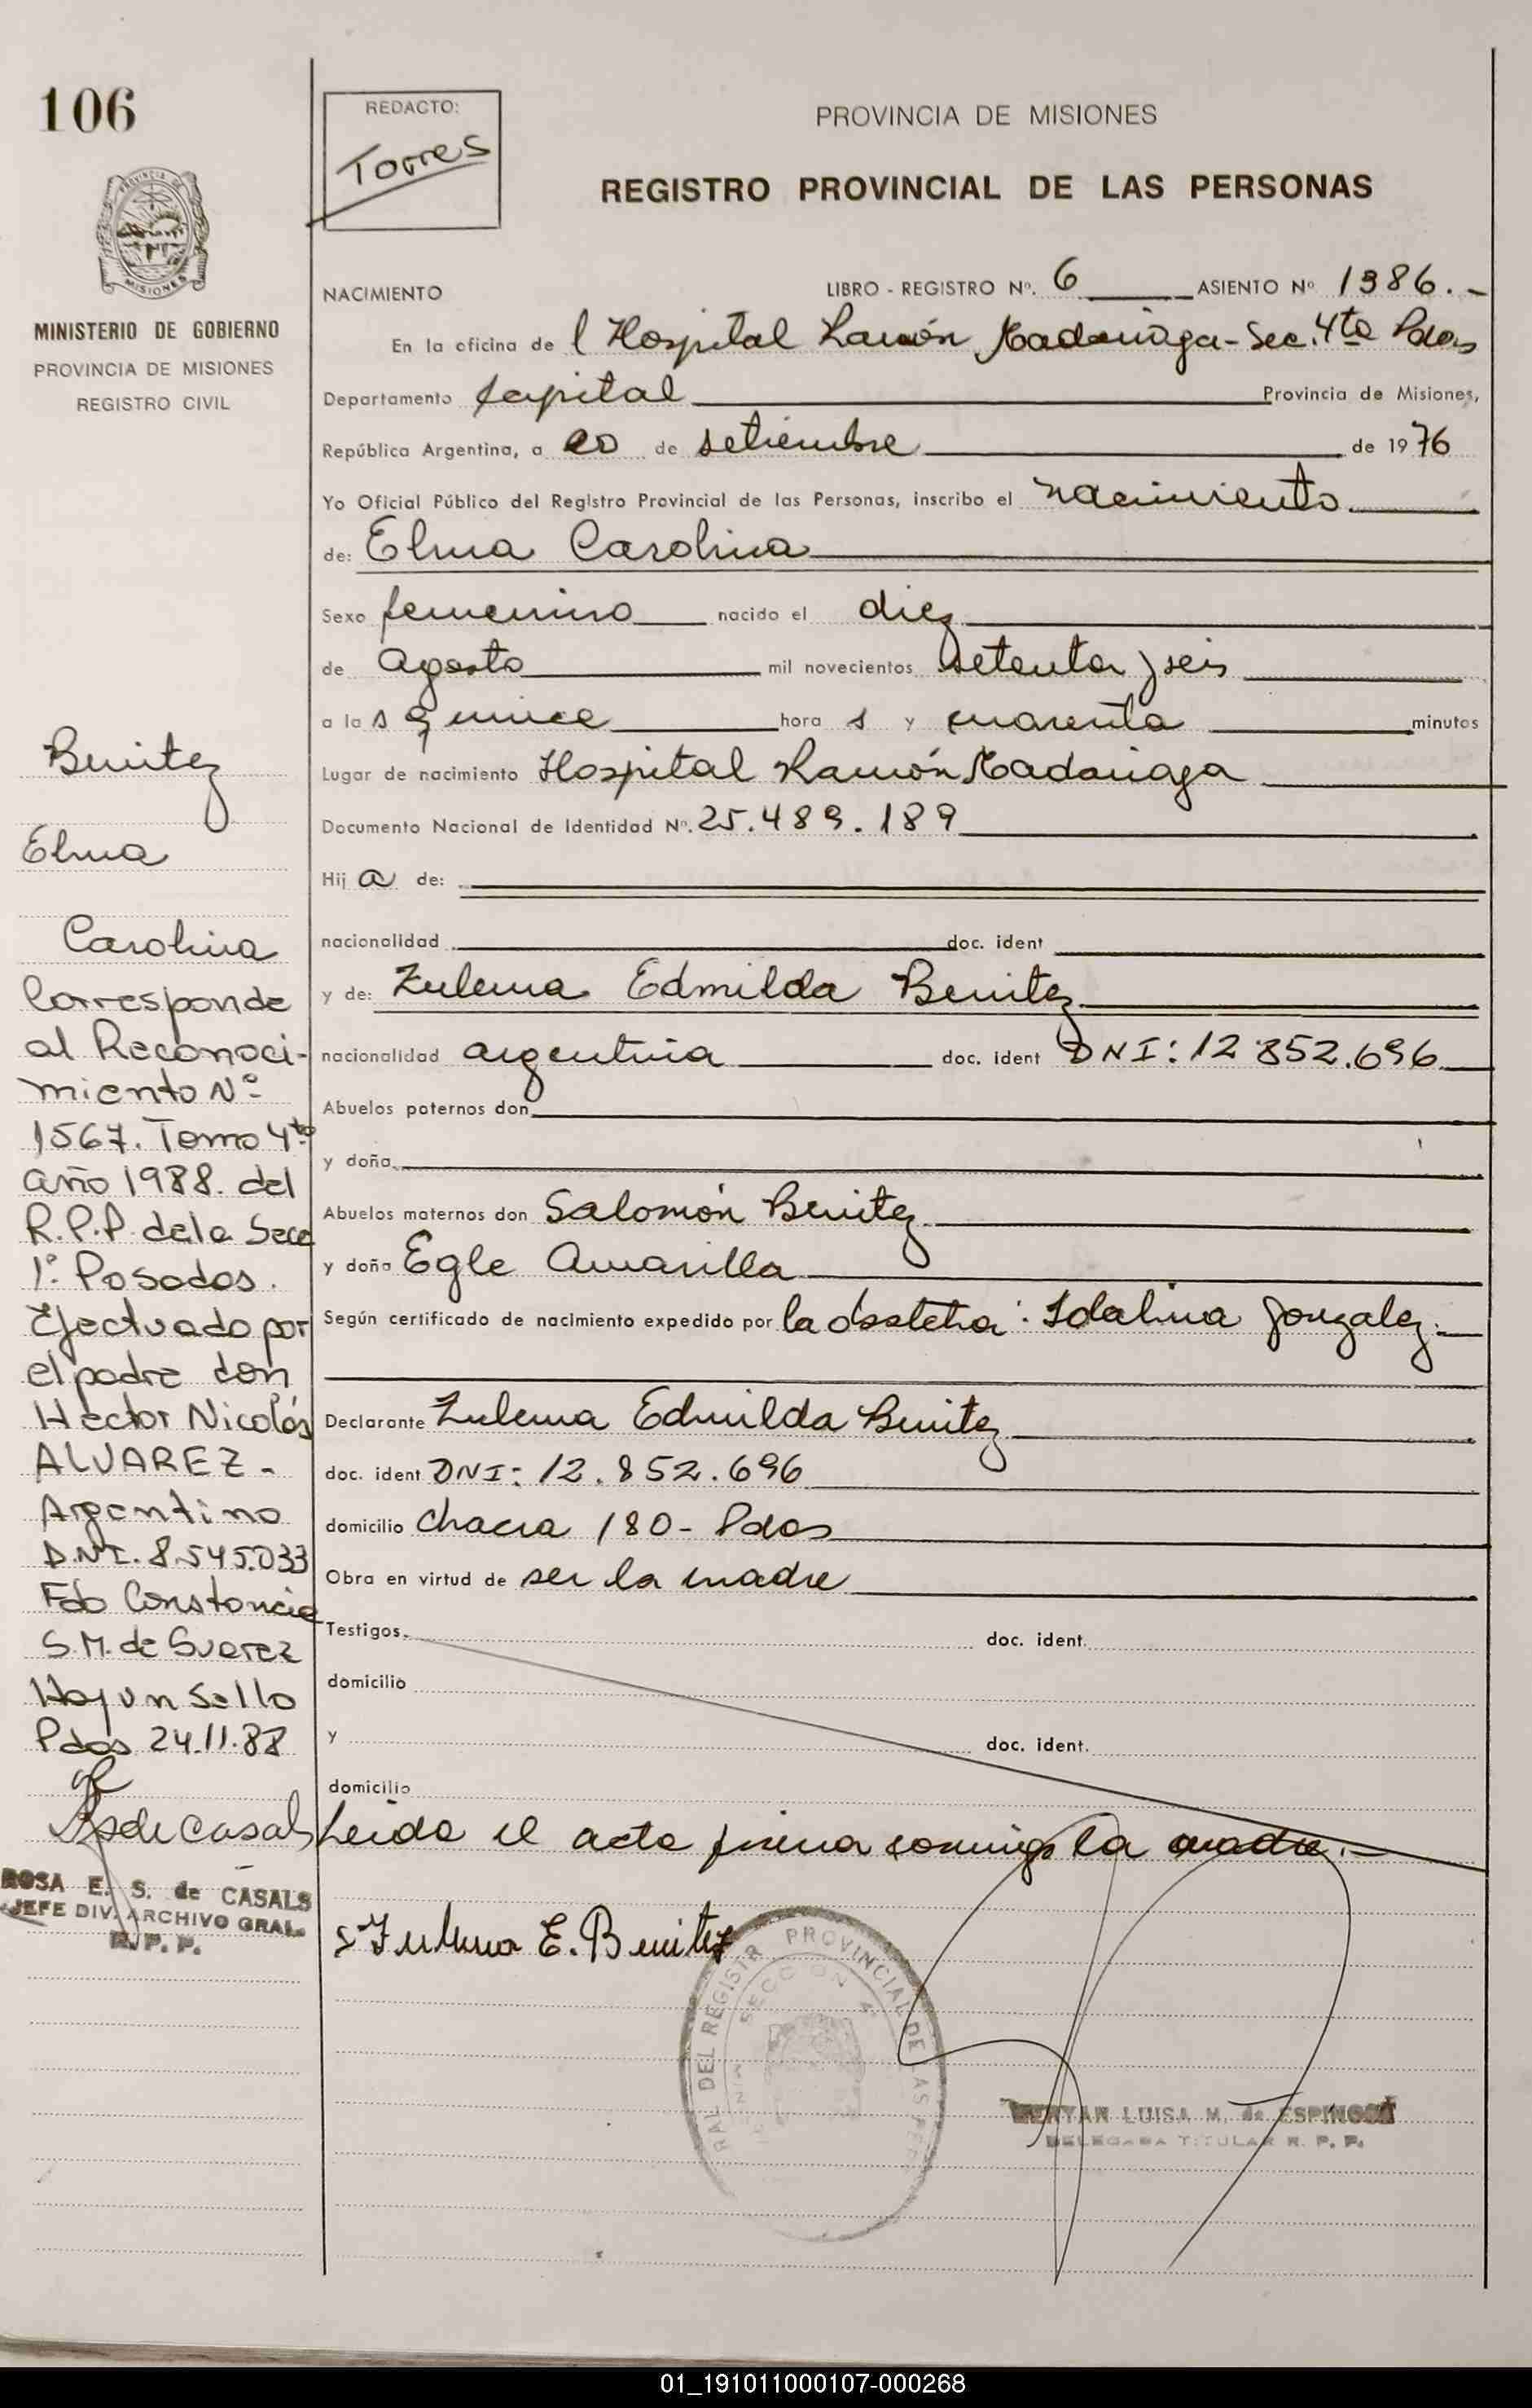 106
REDACTO:
Torres
PROVINCIA DE MISIONES
REGISTRO PROVINCIAL DE LAS PERSONAS
MISIONES
MINISTERIO DE GOBIERNO
PROVINCIA DE MISIONES
REGISTRO CIVIL
NACIMIENTO LIBRO - REGISTRO Nº. 6 ASIENTO Nº 1386.-
En la oficina de l Hospital Ramón Madariaga - Sec. 4ta Pdas
Departamento Capital Provincia de Misiones,
República Argentina, a 20 de setiembre de 1976
Yo Oficial Público del Registro Provincial de las Personas, inscribo el nacimiento
de: Elma Carolina
Sexo femenino nacido el diez
de agosto mil novecientos setenta y seis
a la s quince hora s y cuarenta minutos
Lugar de nacimiento Hospital Ramón Madariaga
Documento Nacional de Identidad Nº. 25.489.189
Hij a de:
nacionalidad doc. ident
y de: Zulema Edmilda Benitez
nacionalidad argentina doc. ident DNI: 12.852.696
Abuelos paternos don
y doña
Abuelos maternos don Salomón Benitez
y doña Egle Amarilla
Según certificado de nacimiento expedido por la obstetra: Idalina Gonzalez.
Declarante Zulema Edmilda Benitez
doc. ident DNI: 12.852.696
domicilio Chacra 180 - Pdas
Obra en virtud de ser la madre
Testigos doc. ident.
domicilio
y doc. ident.
domicilio
Leida el acta firma conmigo la madre.-
Zulema E. Benitez
Benitez
Elma
Carolina
Corresponde
al Reconoci-
miento Nº
1567. Tomo 4to
año 1988. del
R.P.P. de la Secc
1º. Posadas.
Efectuado por
el padre don
Hector Nicolás
ALVAREZ -
Argentino
D.N.I. 8.545.033
Fdo Constancia
S.M. de Suarez
Hay un Sello
Pdas 24.11.88
ROSA E. S. de CASALS
JEFE DIV. ARCHIVO GRAL.
R. P. P.
RAL DEL REGISTR PROVINCIAL DE LAS PER
SECCION 4
LUISA M. de ESPINOSA
DELEGADA TITULAR R. P. P.
01_191011000107-000268